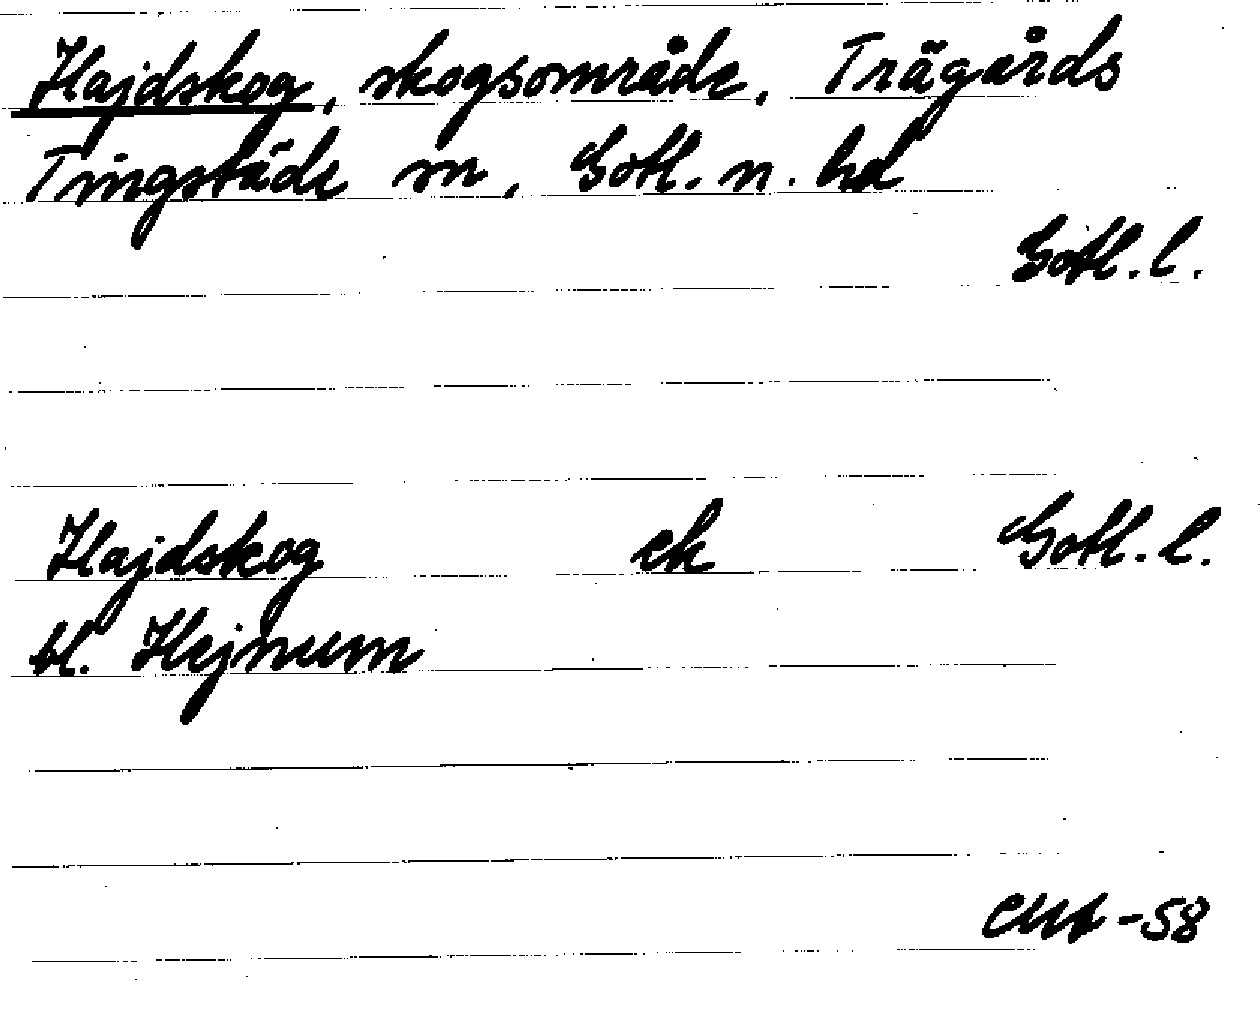 Hajdskog, skogsområde, Trägårds
Tingstäde sn, Gotl. n. hd
Gotl. l.
Hajdskog ek Gotl. l.
bl. Hejnum
-58